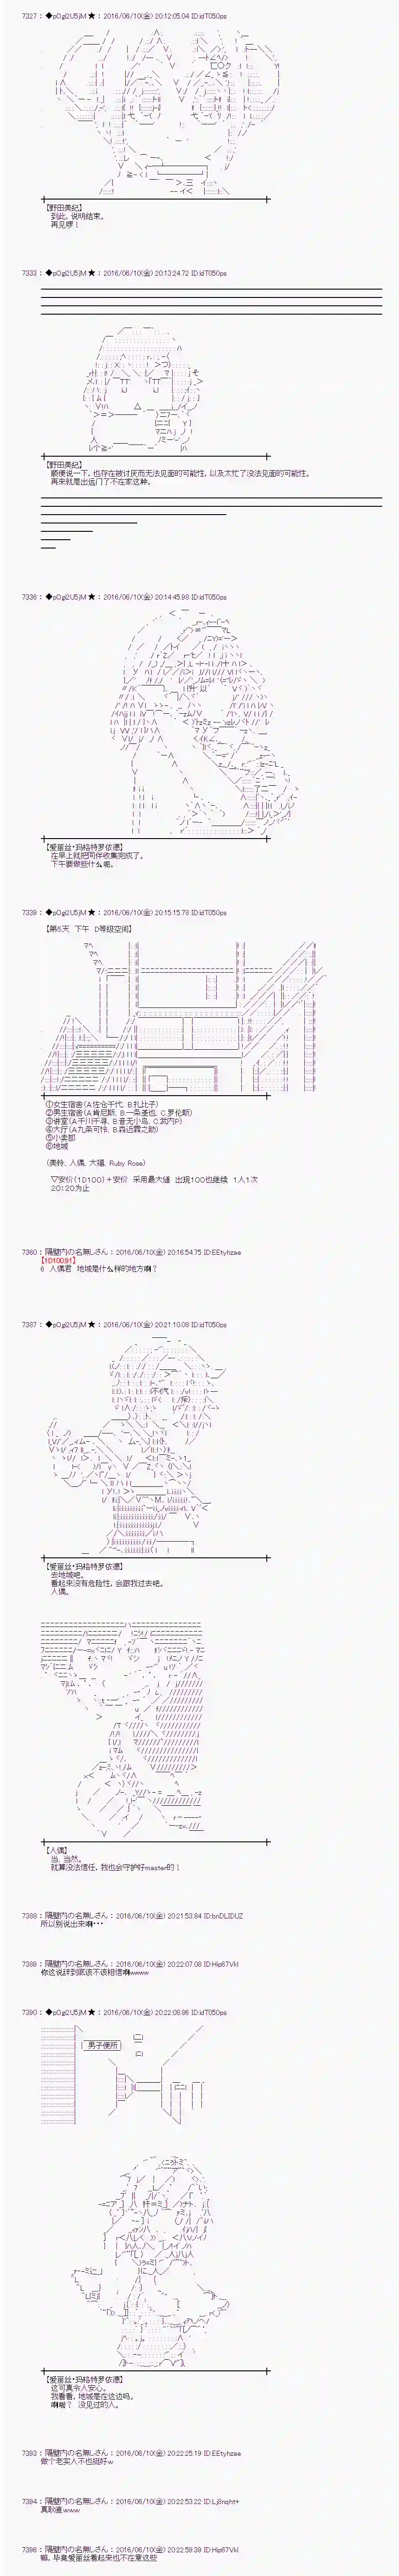 7327 : ◆pOgi2U5jM ★ : 2016/06/10(金) 20:12:05.04 ID:idT050ps
【野田美纪】
到此，说明结束。
再见啰！
7333 : ◆pOgi2U5jM ★ : 2016/06/10(金) 20:13:24.72 ID:idT050ps
【野田美纪】
顺便说一下，也存在被讨厌而无法见面的可能性，以及太忙了没法见面的可能性。
再来就是出远门了不在家这种。
7336 : ◆pOgi2U5jM ★ : 2016/06/10(金) 20:14:45.98 ID:idT050ps
【爱丽丝·玛格特罗依德】
在早上就把同伴收集完成了。
下午要做些什么呢。
7339 : ◆pOgi2U5jM ★ : 2016/06/10(金) 20:15:15.78 ID:idT050ps
【第5天 下午 D等级空间】
①女生宿舍（A.佐仓千代、B.扎比子）
②男生宿舍（A.肯尼斯、B.一条圣也、C.罗伦斯）
③讲室（A.千川千寻、B.音无小鸟、C.武内P）
④大厅（A.九条可怜、B.森近霖之助）
⑤小卖部
⑥地城
（美铃、人偶、大福、Ruby Rose）
▽安价（1D100）＋安价 采用最大値 出現100也继续 1人1次
20:20为止
7360 : 隔壁内の名無しさん : 2016/06/10(金) 20:16:54.75 ID:EEtyhzae
【1D100:91】
6 人偶君 地城是什么样的地方啊？
7387 : ◆pOgi2U5jM ★ : 2016/06/10(金) 20:21:10.08 ID:idT050ps
【爱丽丝·玛格特罗依德】
去地城吧。
看起来没有危险性，会跟我过去吧。
人偶。
【人偶】
当、当然。
就算没法信任，我也会守护好master的！
7388 : 隔壁内の名無しさん : 2016/06/10(金) 20:21:53.84 ID:bnDLIDUZ
所以别说出来啊・・・
7389 : 隔壁内の名無しさん : 2016/06/10(金) 20:22:07.08 ID:Hip67VkI
你这说辞到底该不该相信啊wwww
7390 : ◆pOgi2U5jM ★ : 2016/06/10(金) 20:22:08.86 ID:idT050ps
男子便所
【爱丽丝·玛格特罗依德】
这可真令人安心。
我看看，地城是在这边吗。
啊啦？ 没见过的人。
7393 : 隔壁内の名無しさん : 2016/06/10(金) 20:22:25.19 ID:EEtyhzae
做个老实人不也挺好w
7394 : 隔壁内の名無しさん : 2016/06/10(金) 20:22:53.22 ID:Lj8nqht+
真耿直www
7396 : 隔壁内の名無しさん : 2016/06/10(金) 20:22:59.39 ID:Hip67VkI
嘛，毕竟爱丽丝看起来也不在意这些